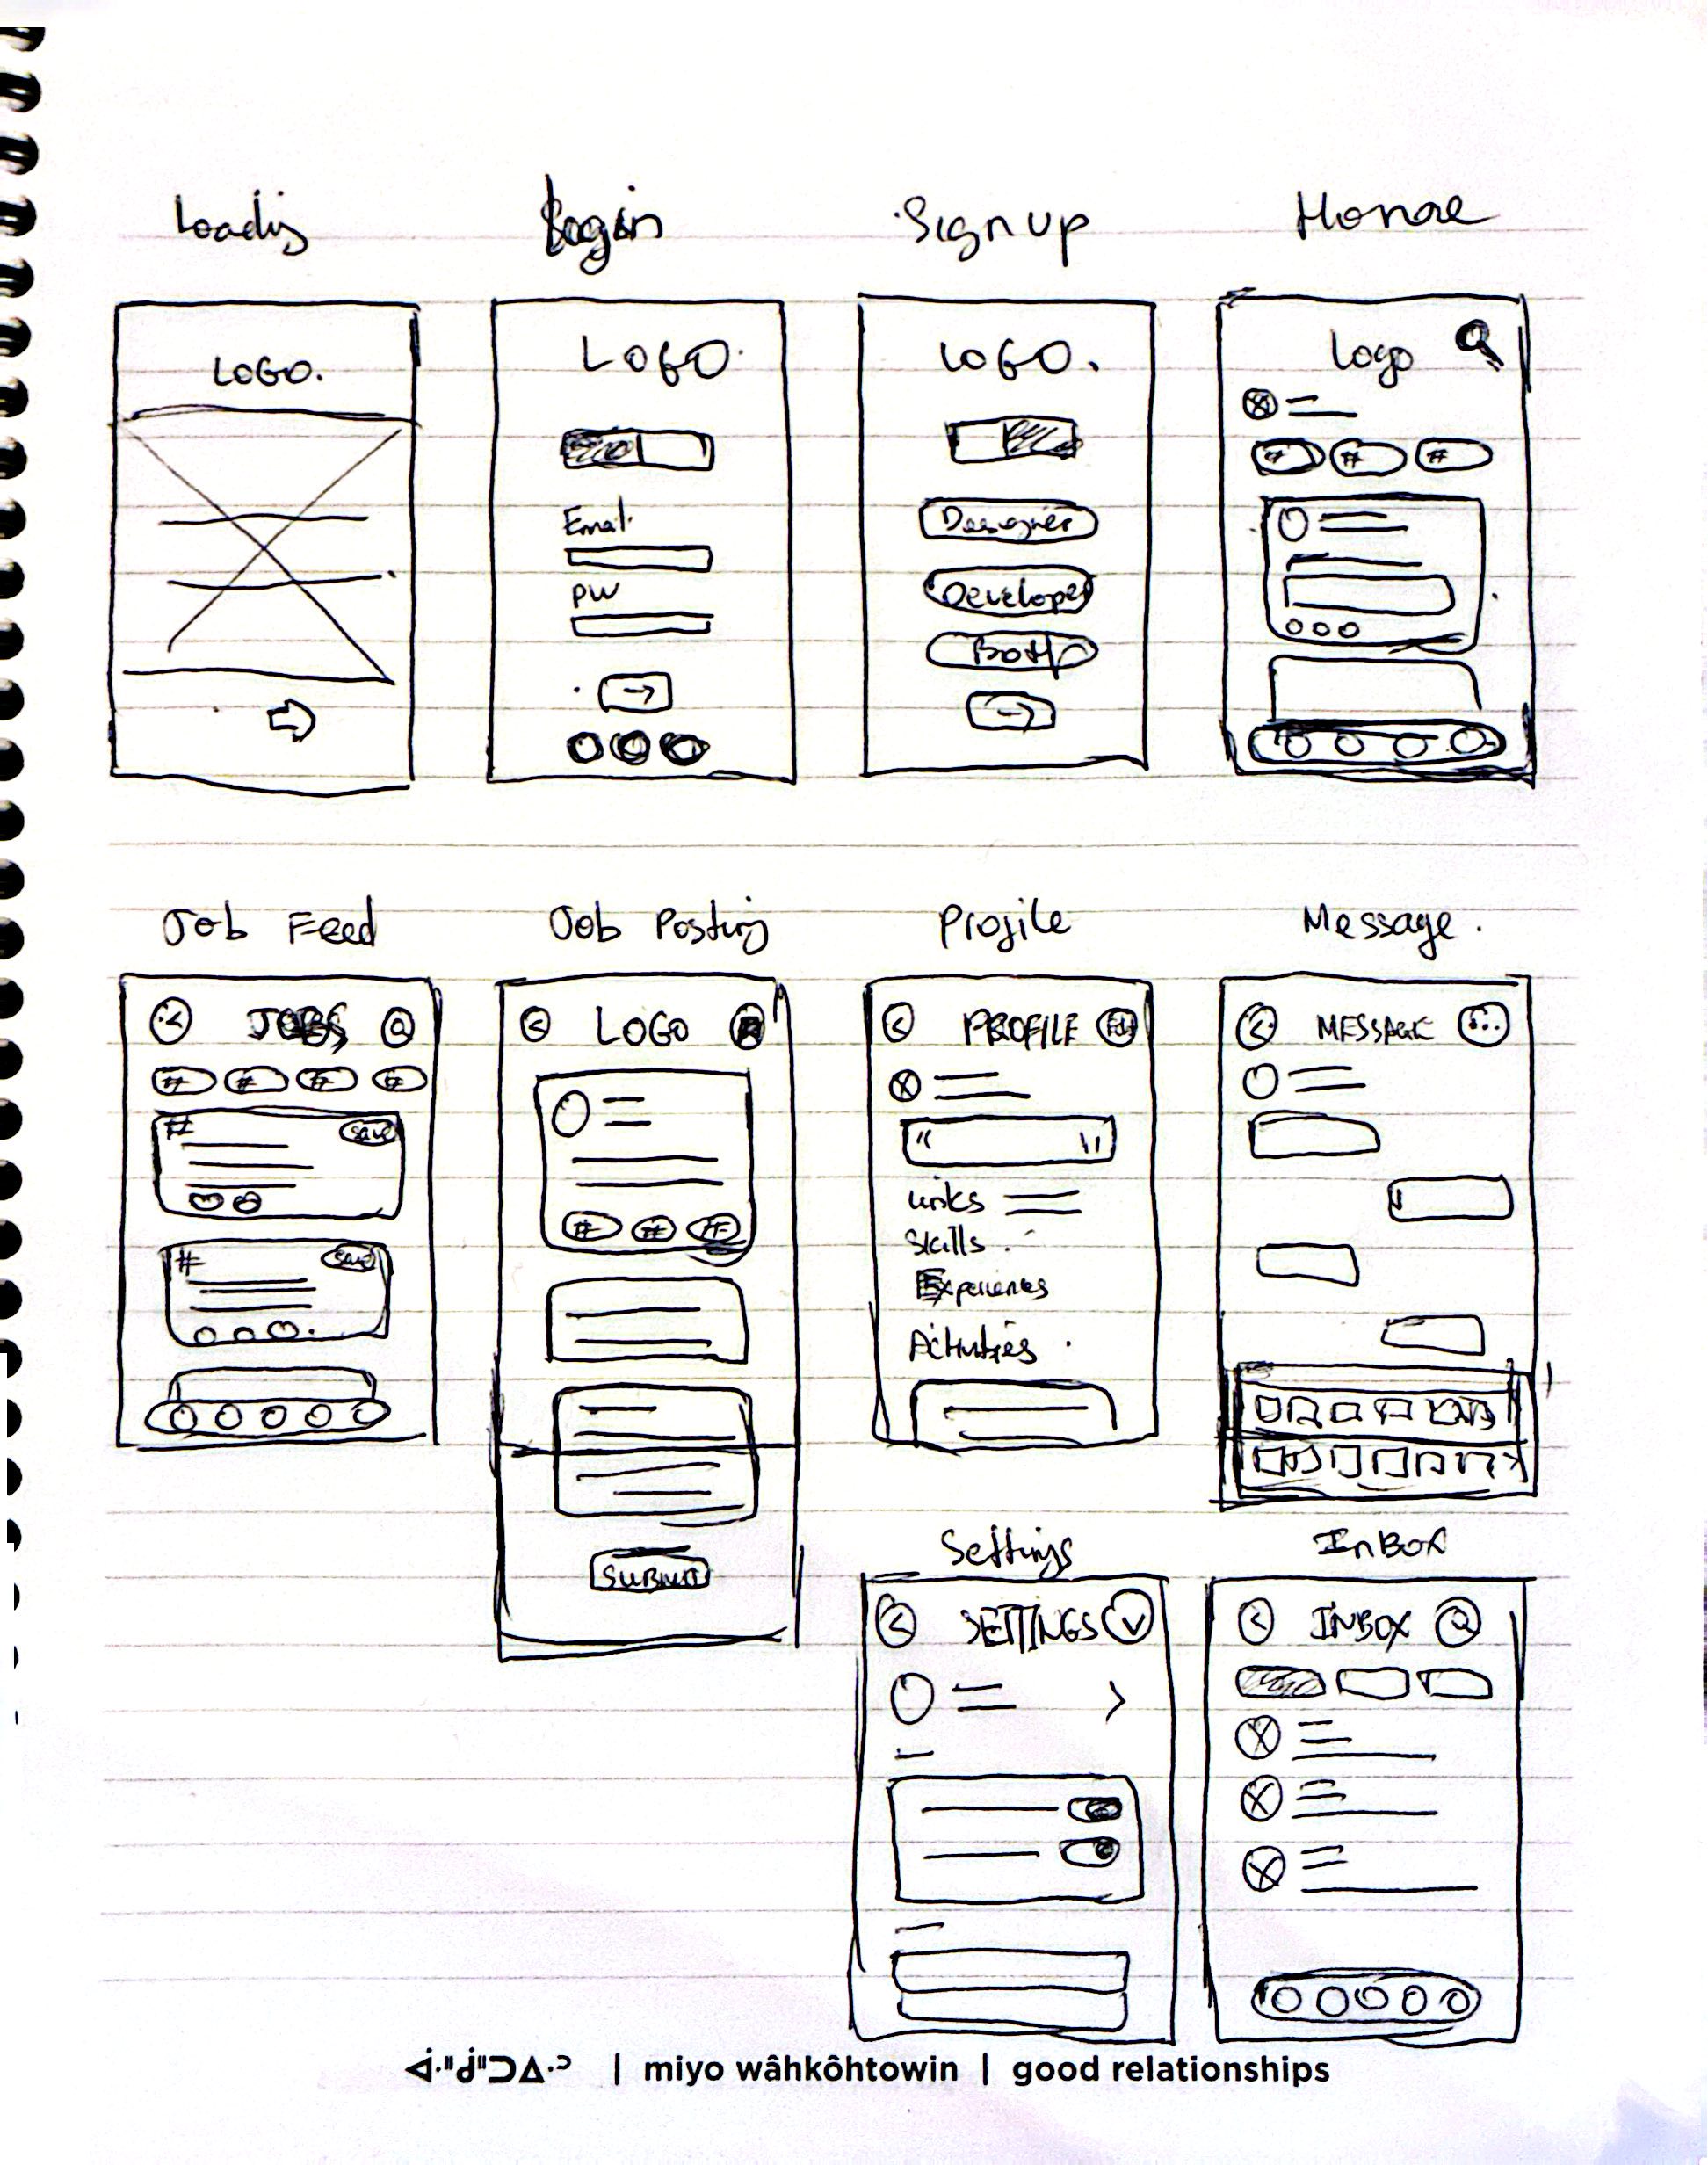 Loading
Login
Sign up
Home
LOGO.
LOGO.
LOGO.
Logo
Email
PW
Designer
Developer
Both
# # #
Job Feed
Job Posting
Profile
Message.
JOBS
LOGO
PROFILE Edit
MESSAGE
# # # #
# save
# save
# # #
" "
Links
Skills
Experiences
Activities
SUBMIT
Settings
InBox
SETTINGS
INBOX
ᐚᐦᑰᐦᑐᐃᐧᐣ | miyo wâhkôhtowin | good relationships